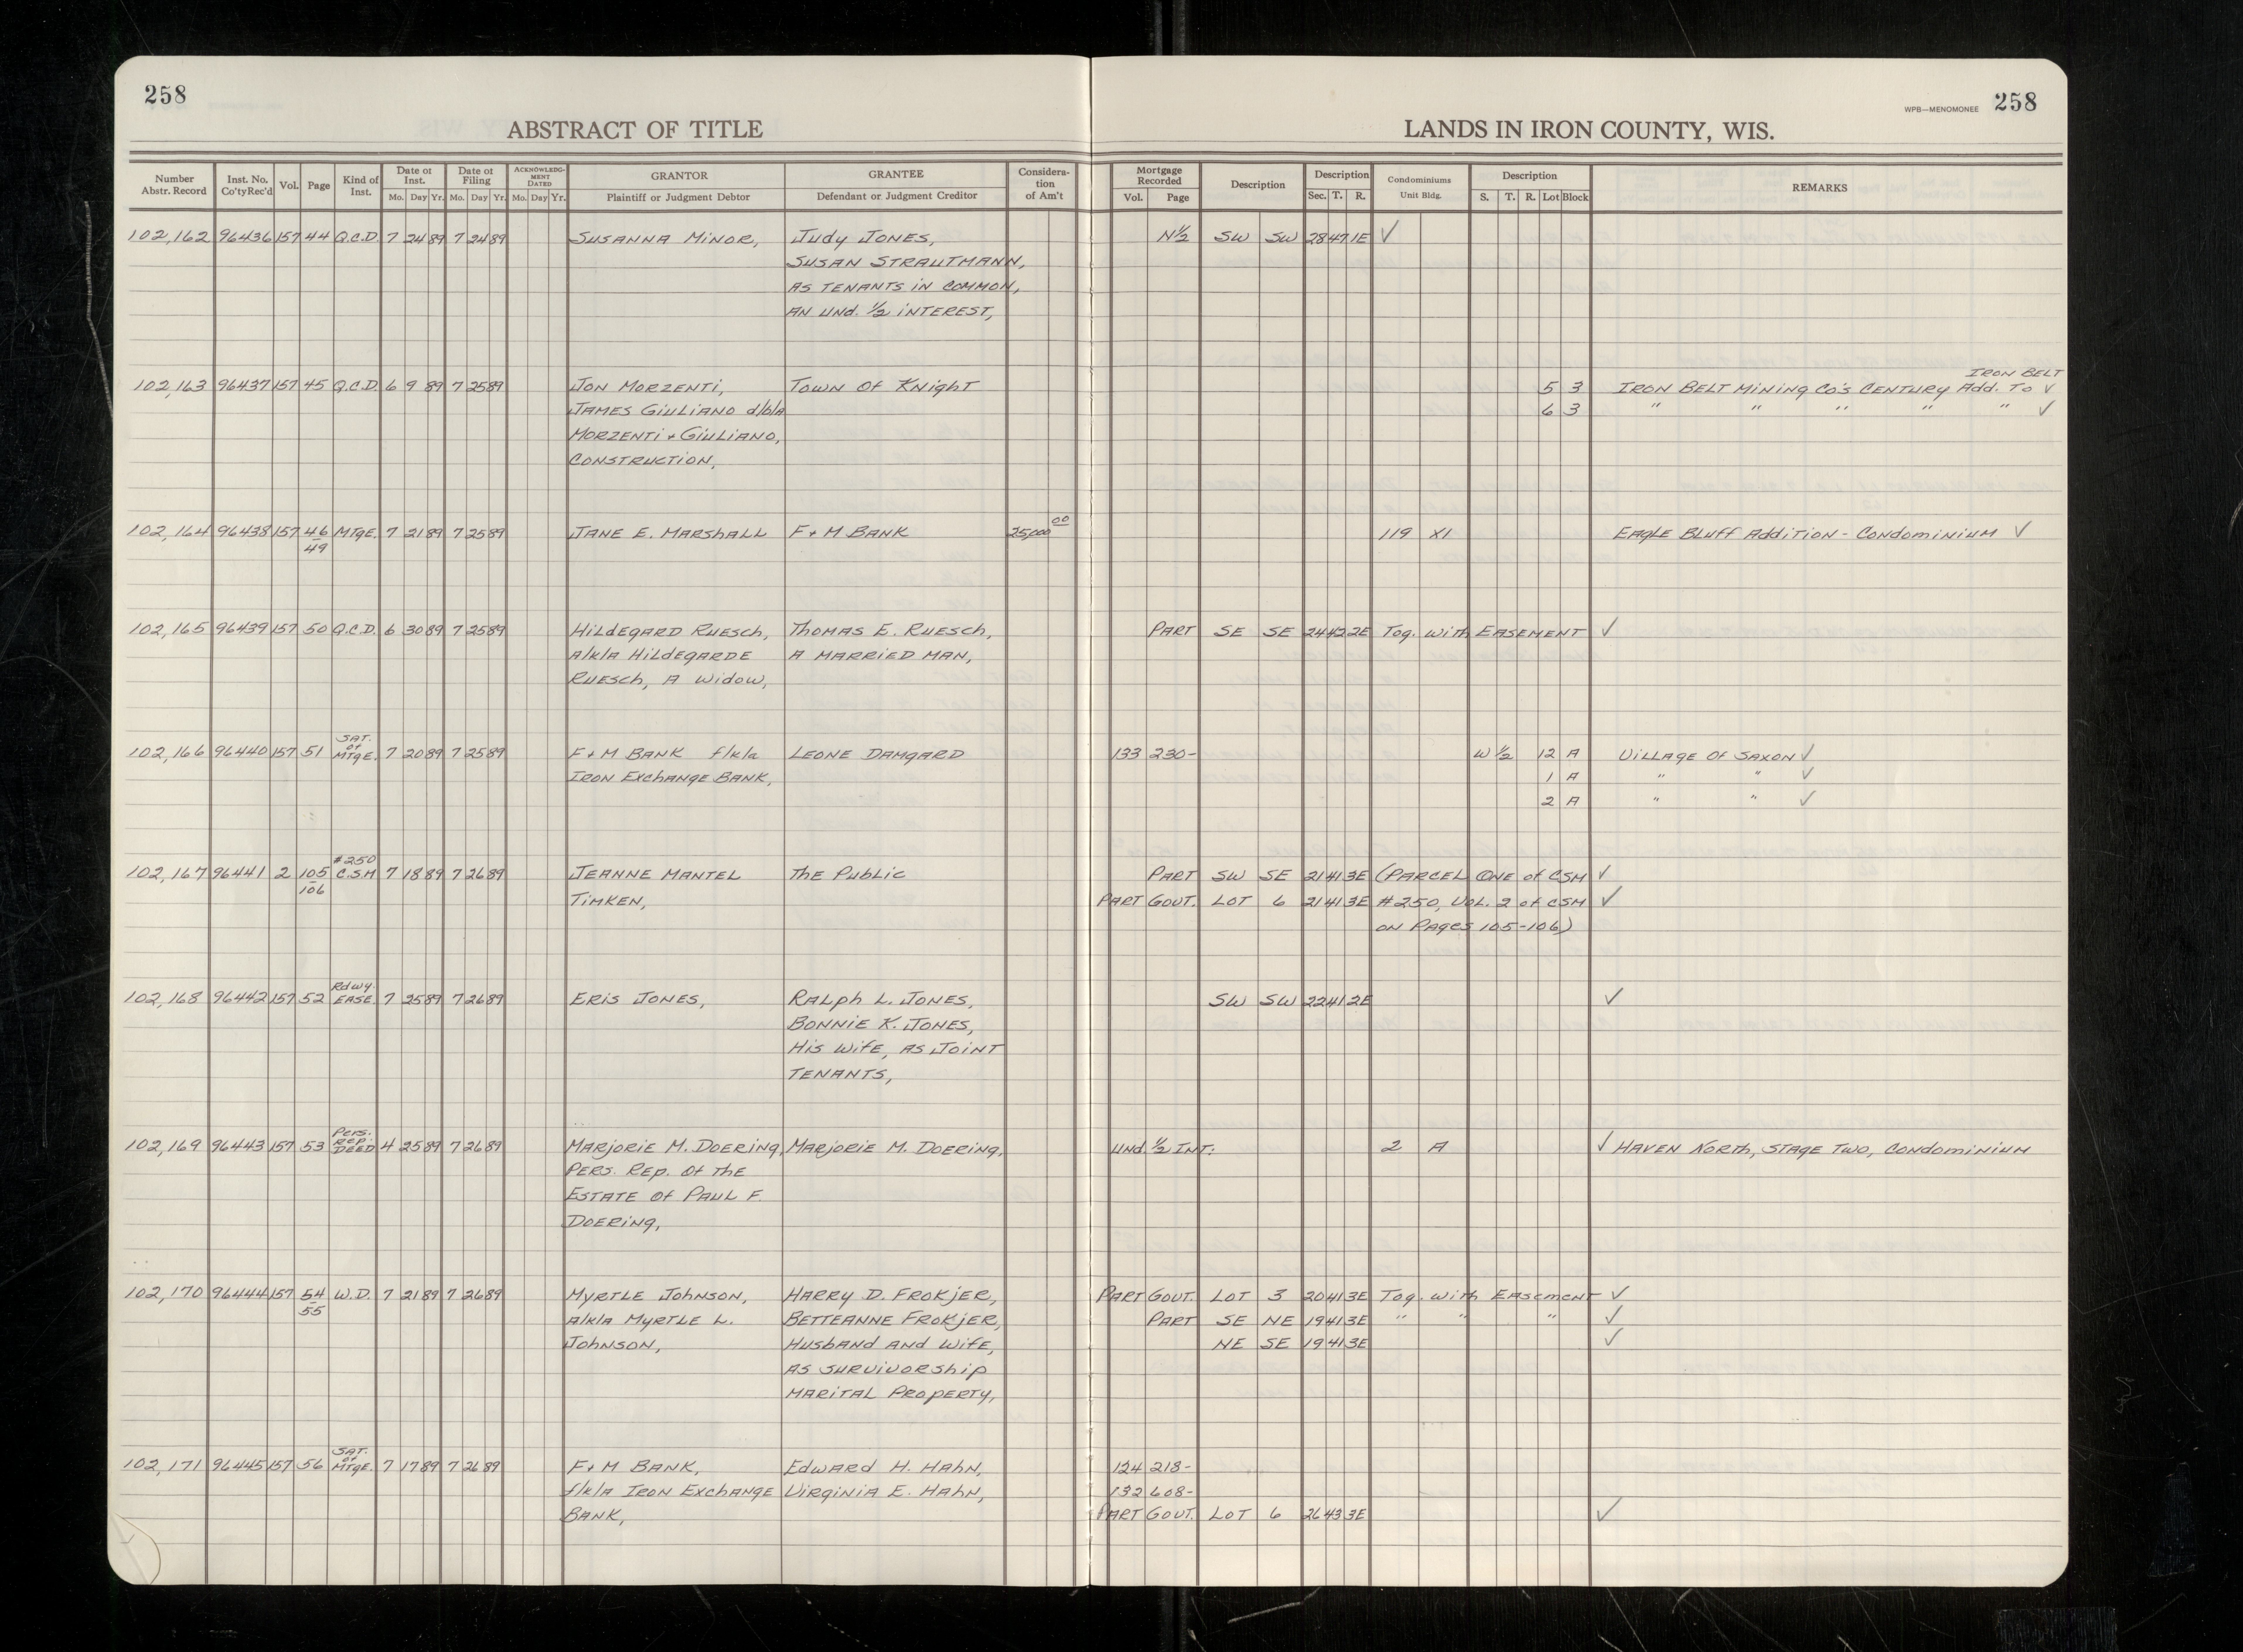 258
258
WPB—MENOMONEE
ABSTRACT OF TITLE
LANDS IN IRON COUNTY, WIS.
Number Abstr. Record | Inst. No. Co'tyRec'd | Vol. | Page | Kind of Inst. | Date of Inst. Mo. Day Yr. | Date of Filing Mo. Day Yr. | ACKNOWLEDGMENT DATED Mo. Day Yr. | GRANTOR Plaintiff or Judgment Debtor | GRANTEE Defendant or Judgment Creditor | Consideration of Am't | Mortgage Recorded Vol. Page | Description | Description Sec. T. R. | Condominiums Unit Bldg. | Description S. T. R. Lot Block | REMARKS
102,162 96436 157 44 Q.C.D. 7 24 89 7 24 89 SUSANNA MINOR, JUDY JONES, N½ SW SW 28 47 1E ✓
SUSAN STRAUTMANN,
AS TENANTS IN COMMON,
AN UND. ½ INTEREST,
IRON BELT
102,163 96437 157 45 Q.C.D. 6 9 89 7 25 89 JON MORZENTI, TOWN OF KNIGHT 5 3 IRON BELT MINING CO'S CENTURY Add. TO ✓
JAMES GIULIANO d/b/a 6 3 " " " " " ✓
MORZENTI + GIULIANO,
CONSTRUCTION,
102,164 96438 157 46 MTGE. 7 21 89 7 25 89 JANE E. MARSHALL F + M BANK 25,000 00 119 XI EAGLE BLUFF ADDITION - CONDOMINIUM ✓
49
102,165 96439 157 50 Q.C.D. 6 30 89 7 25 89 HILDEGARD RUESCH, THOMAS E. RUESCH, PART SE SE 24 42 2E TOG. WITH EASEMENT ✓
A/K/A HILDEGARDE A MARRIED MAN,
RUESCH, A WIDOW,
SAT.
OF
102,166 96440 157 51 MTGE. 7 20 89 7 25 89 F + M BANK f/k/a LEONE DAMGARD 133 230- W ½ 12 A VILLAGE OF SAXON ✓
IRON EXCHANGE BANK, 1 A " " ✓
2 A " " ✓
#250
102,167 96441 2 105 C.S.M 7 18 89 7 26 89 JEANNE MANTEL THE PUBLIC PART SW SE 21 41 3E (PARCEL ONE OF CSM ✓
106 TIMKEN, PART GOVT. LOT 6 21 41 3E #250, VOL. 2 OF CSM ✓
ON PAGES 105-106)
Rdwy.
102,168 96442 157 52 EASE. 7 25 89 7 26 89 ERIS JONES, RALPH L. JONES, SW SW 22 41 2E ✓
BONNIE K. JONES,
HIS WIFE, AS JOINT
TENANTS,
PERS.
REP.
102,169 96443 157 53 DEED 4 25 89 7 26 89 MARJORIE M. DOERING, MARJORIE M. DOERING, UND. ½ INT: 2 A ✓ HAVEN NORTH, STAGE TWO, CONDOMINIUM
PERS. REP. OF THE
ESTATE OF PAUL F.
DOERING,
102,170 96444 157 54 W.D. 7 21 89 7 26 89 MYRTLE JOHNSON, HARRY D. FROKJER, PART GOVT. LOT 3 20 41 3E TOG. WITH EASEMENT ✓
55 A/K/A MYRTLE L. BETTEANNE FROKJER, PART SE NE 19 41 3E " " " ✓
JOHNSON, HUSBAND AND WIFE, NE SE 19 41 3E ✓
AS SURVIVORSHIP
MARITAL PROPERTY,
SAT.
OF
102,171 96445 157 56 MTGE. 7 17 89 7 26 89 F + M BANK, EDWARD H. HAHN, 124 218-
f/k/a IRON EXCHANGE VIRGINIA E. HAHN, 132 608-
BANK, PART GOVT. LOT 6 26 43 3E ✓